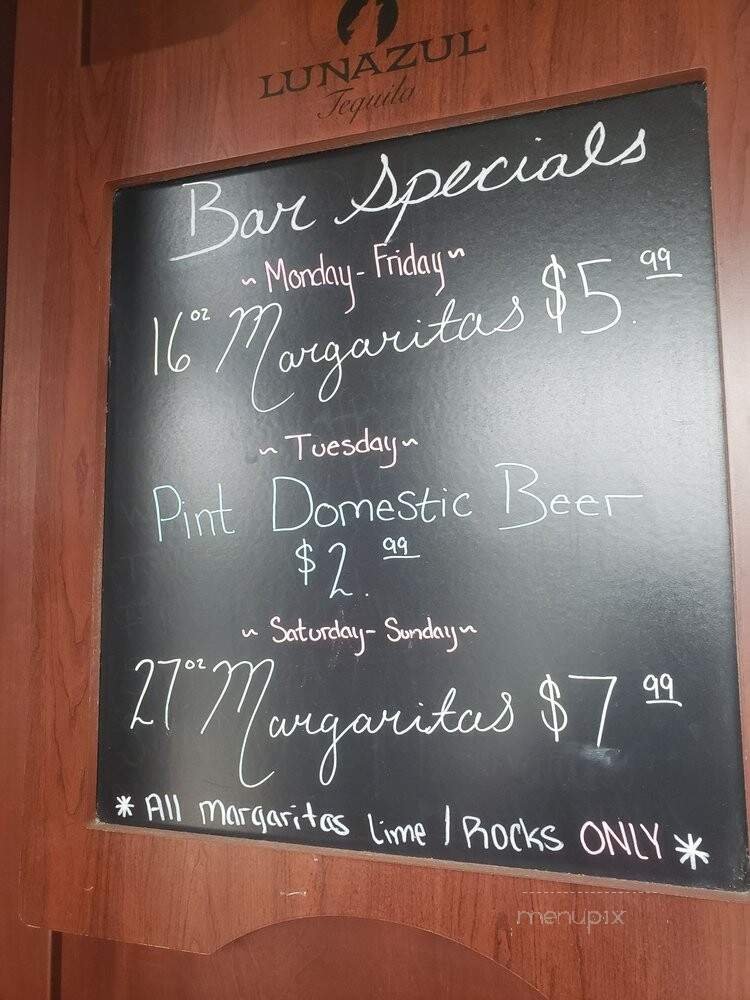 LUNAZUL
Tequila
Bar Specials
~ Monday - Friday ~
16 oz Margaritas $5.99
~ Tuesday ~
Pint Domestic Beer
$2.99
~ Saturday - Sunday ~
27 oz Margaritas $7 99
* All Margaritas Lime / Rocks ONLY *
menupix